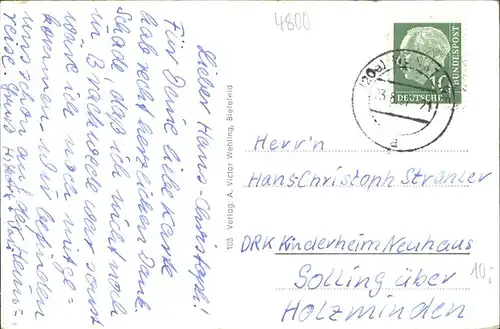 4800
Lieber Hans-Christoph!
Für Deine liebe Karte
hab recht herzlichen Dank.
Schade, daß ich nicht noch
in Brackwede war sonst
wäre ich noch mitge-
kommen. Wir befinden
uns schon auf der Heim-
reise. Gruß
103 Verlag A. Victor Wehling, Bielefeld
10
DEUTSCHE
BUNDESPOST
(20a)
a
Herr'n
Hans Christoph
DRK Kinderheim Neuhaus
Solling über
Holzminden
10.-